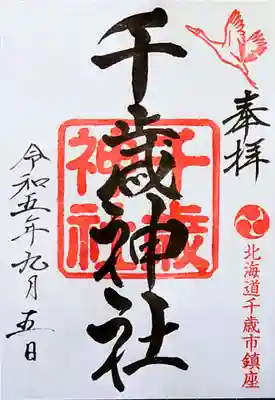 奉拝
北海道千歳市鎮座
千歳神社
千歳神社
令和五年九月五日